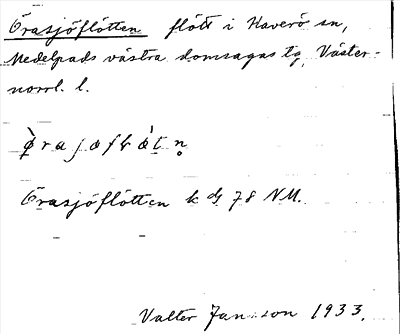 Örasjöflötten flött i Haverö sn,
Medelpads västra domsagas tg, Väster-
norrl. l.
Örasjöflötten k bl 78 NM.
Valter Jansson 1933.